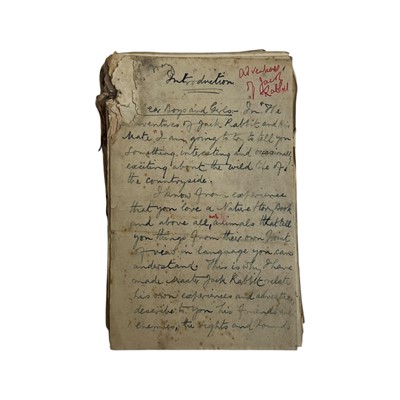 Introduction
Adventures
of Jack
Rabbit
Dear Boys and Girls,- In "The
Adventures of Jack Rabbit and his
Mate" I am going to try to tell you
something, interesting and occasionally
exciting about the wild life of
the countryside.
I know from experience
that you love a Nature Story Book
and above all, animals that tell
you things from their own point
of view in language you can
understand. This is why I have
made Master Jack Rabbit relate
his own experiences and adventures,
describe to you his friends and
enemies, the sights and sounds